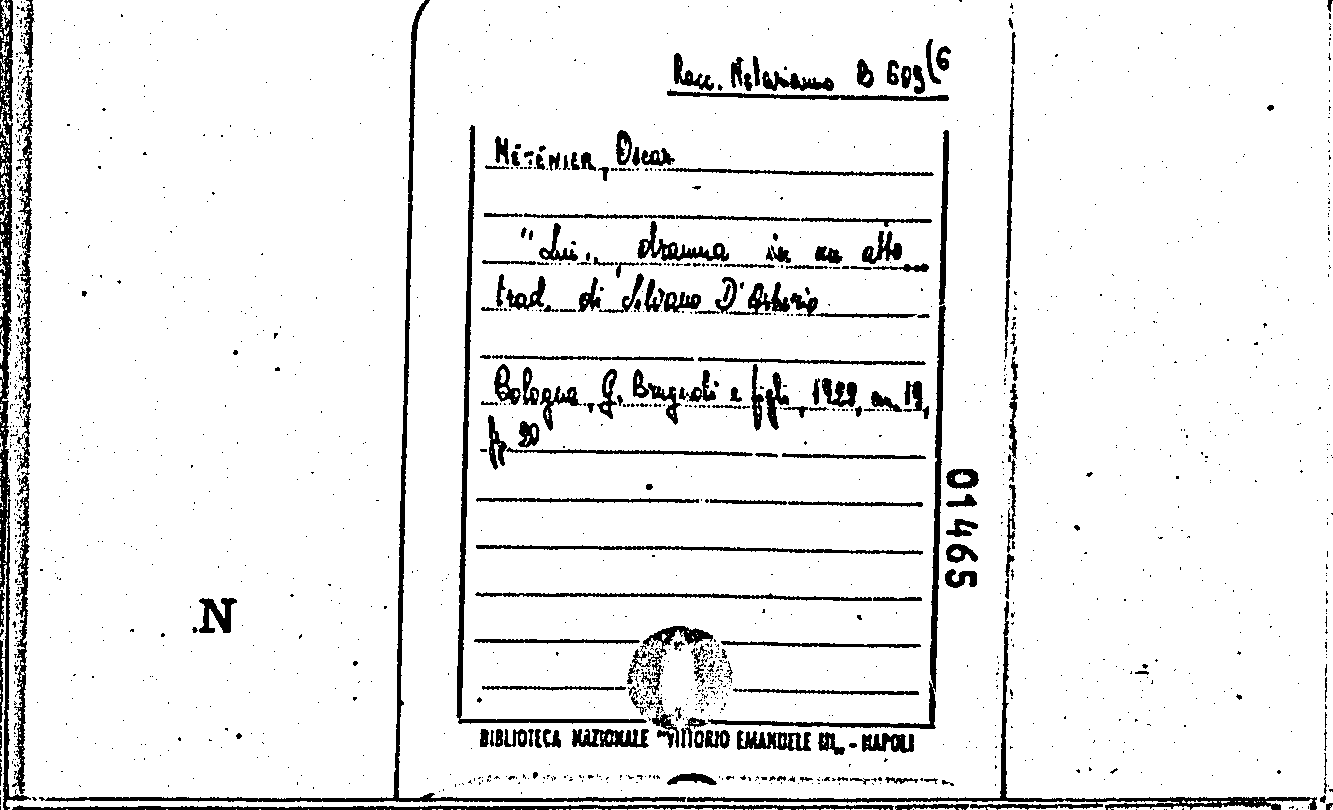 Racc. Notarianno B 609(6
MÉTÉNIER, Oscar
"Lui", dramma in un atto...
trad. di Silvano D'Arborio
Bologna, G. Brugnoli e figli, 1922, in 19,
pp. 20
01465
N
BIBLIOTECA NAZIONALE "VITTORIO EMANUELE III" - NAPOLI